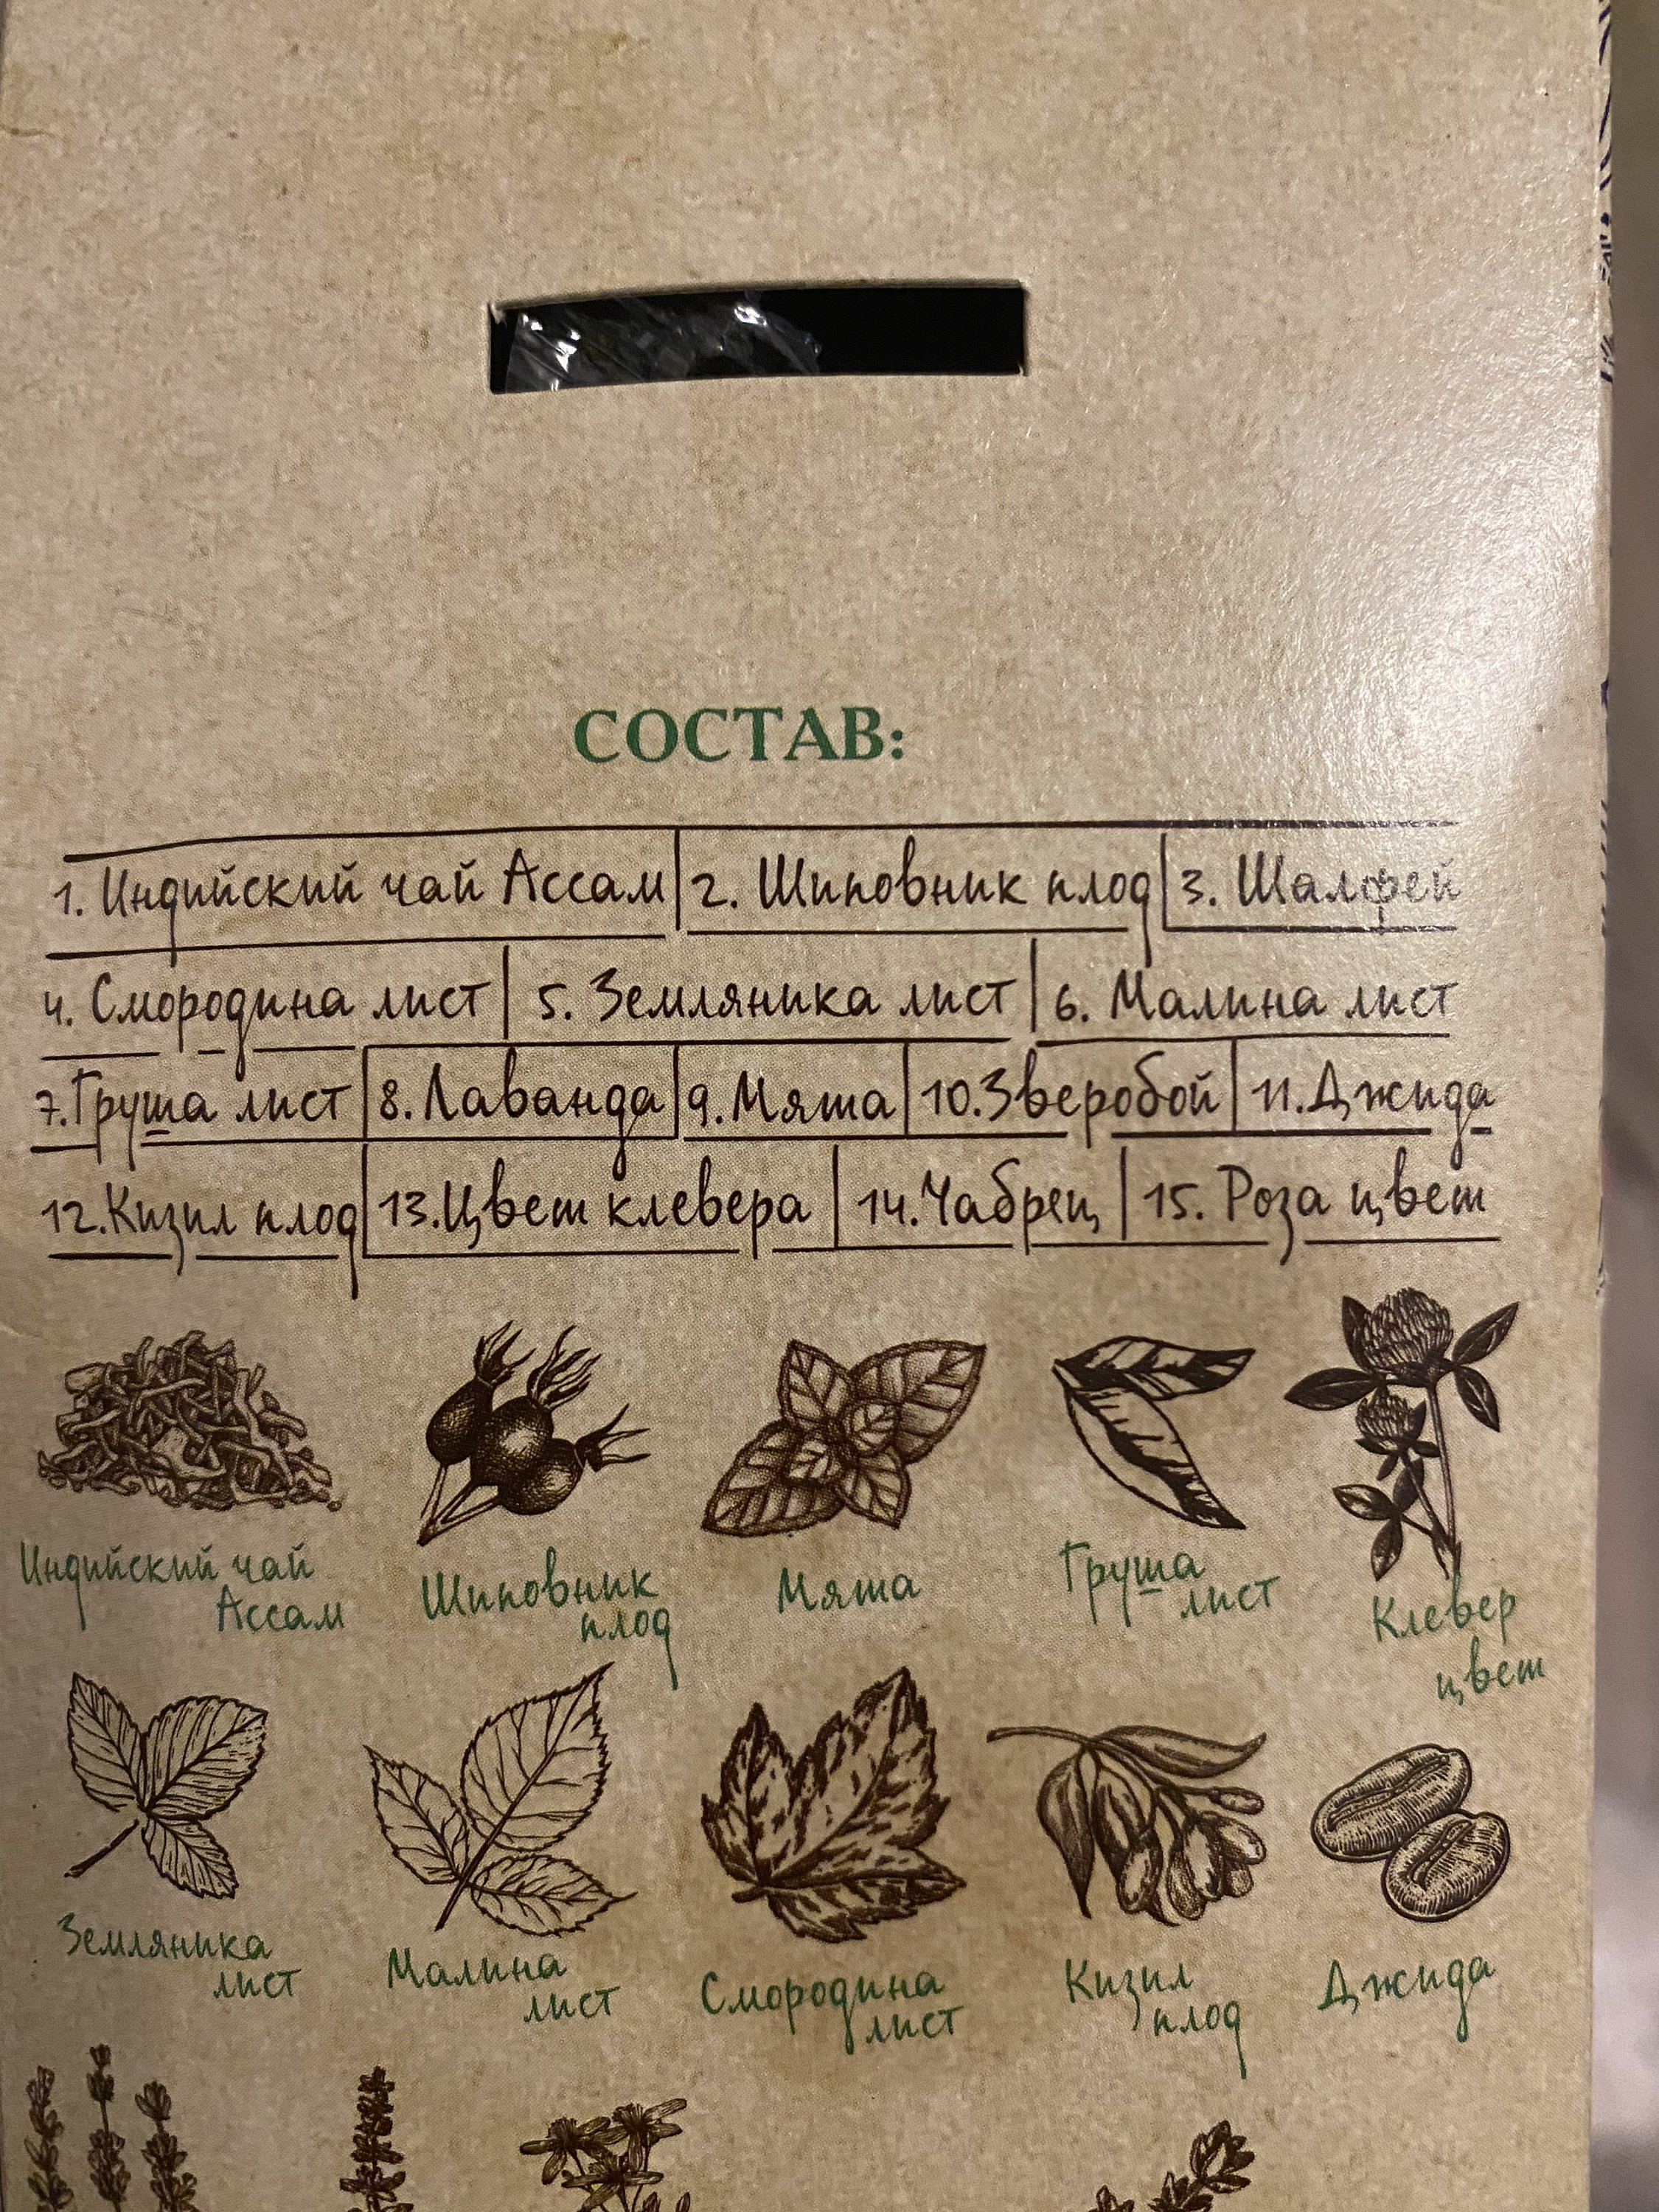 СОСТАВ:
1. Индийский чай Ассам 2. Шиповник плод 3. Шалфей
4. Смородина лист 5. Земляника лист 6. Малина лист
7. Груша лист 8. Лаванда 9. Мята 10. Зверобой 11. Джида
12. Кизил плод 13. Цвет клевера 14. Чабрец 15. Роза цвет
Индийский чай
Ассам
Шиповник
плод
Мята
Груша
лист
Клевер
цвет
Земляника
лист
Малина
лист
Смородина
лист
Кизил
плод
Джида